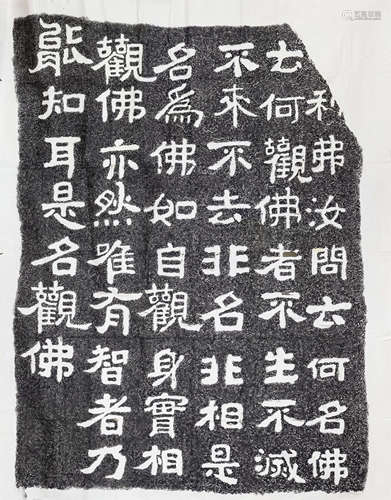 利弗汝問云何名佛
云何觀佛者不生不滅
不來不去非名非相是
名為佛如自觀身實相
觀佛亦然唯有智者乃
能知耳是名觀佛